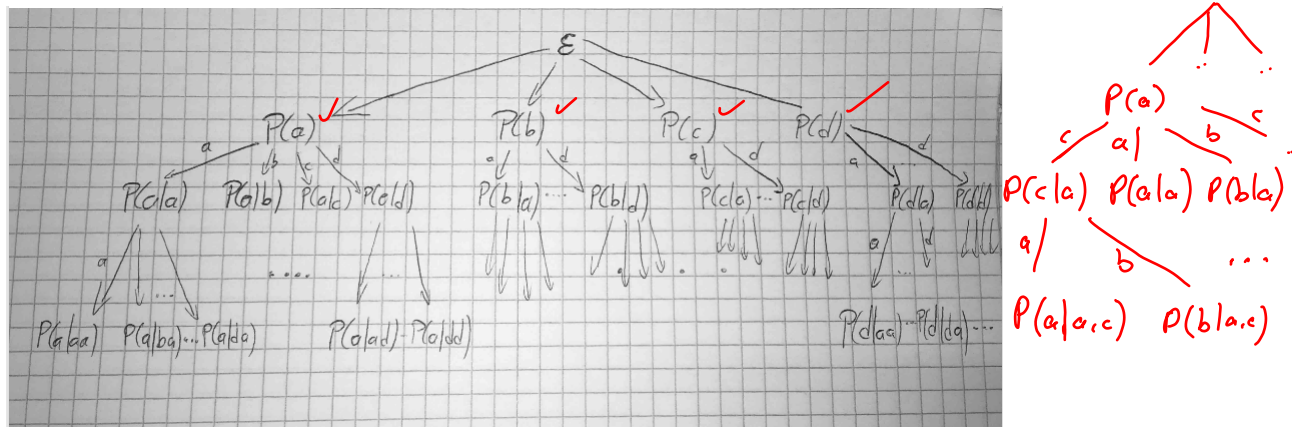 ε
P(a) P(b) P(c) P(d)
a b c d a d a d a d
P(a|a) P(a|b) P(a|c) P(a|d) P(b|a) .... P(b|d) P(c|a) ... P(c|d) P(d|a) P(d|d)
a a d
P(a|aa) P(a|ba) ... P(a|da) P(a|ad) - P(a|dd) P(d|aa) ... P(d|da) ...
P(a)
c a b c
P(c|a) P(a|a) P(b|a)
a b ...
P(a|a,c) P(b|a,c)